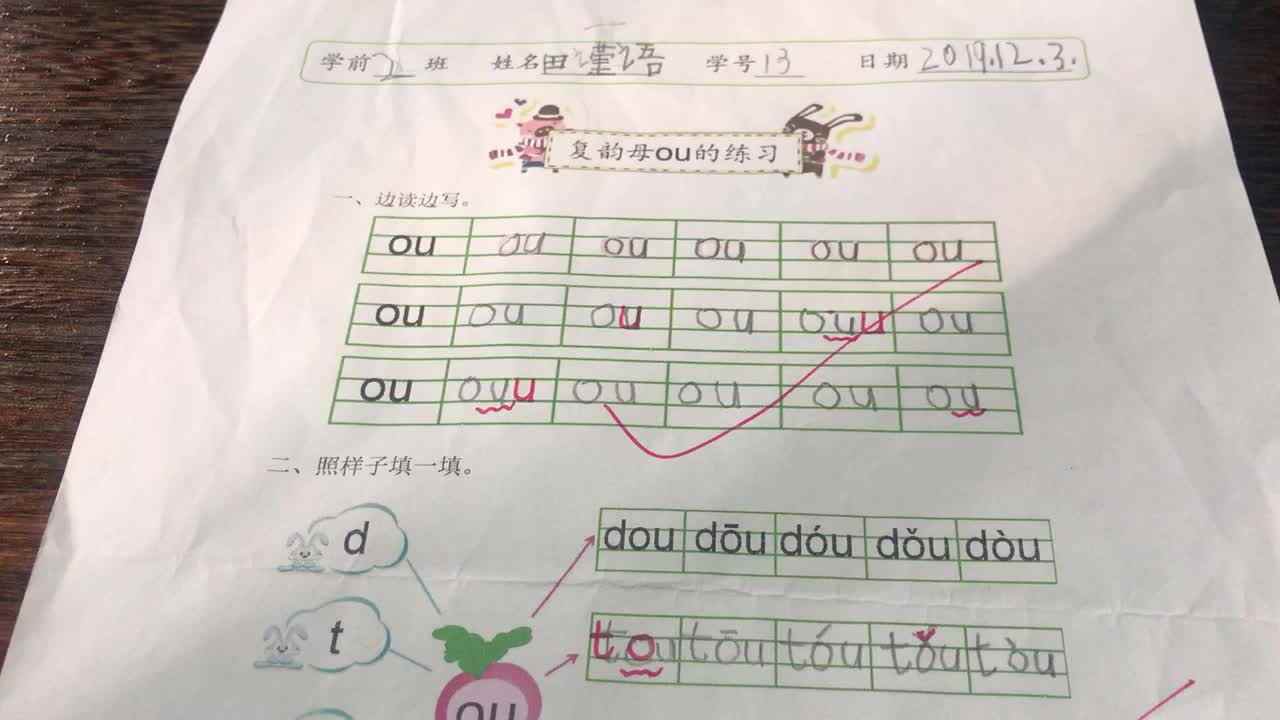 学前二班 姓名田谨语 学号13 日期2019.12.3.
复韵母ou的练习
一、边读边写。
ou ou ou ou ou ou
ou ou ou ou ouu ou
ou ouu ou ou ou ou
二、照样子填一填。
d
dou dōu dóu dǒu dòu
t
tou tōu tóu tǒu tòu
ou